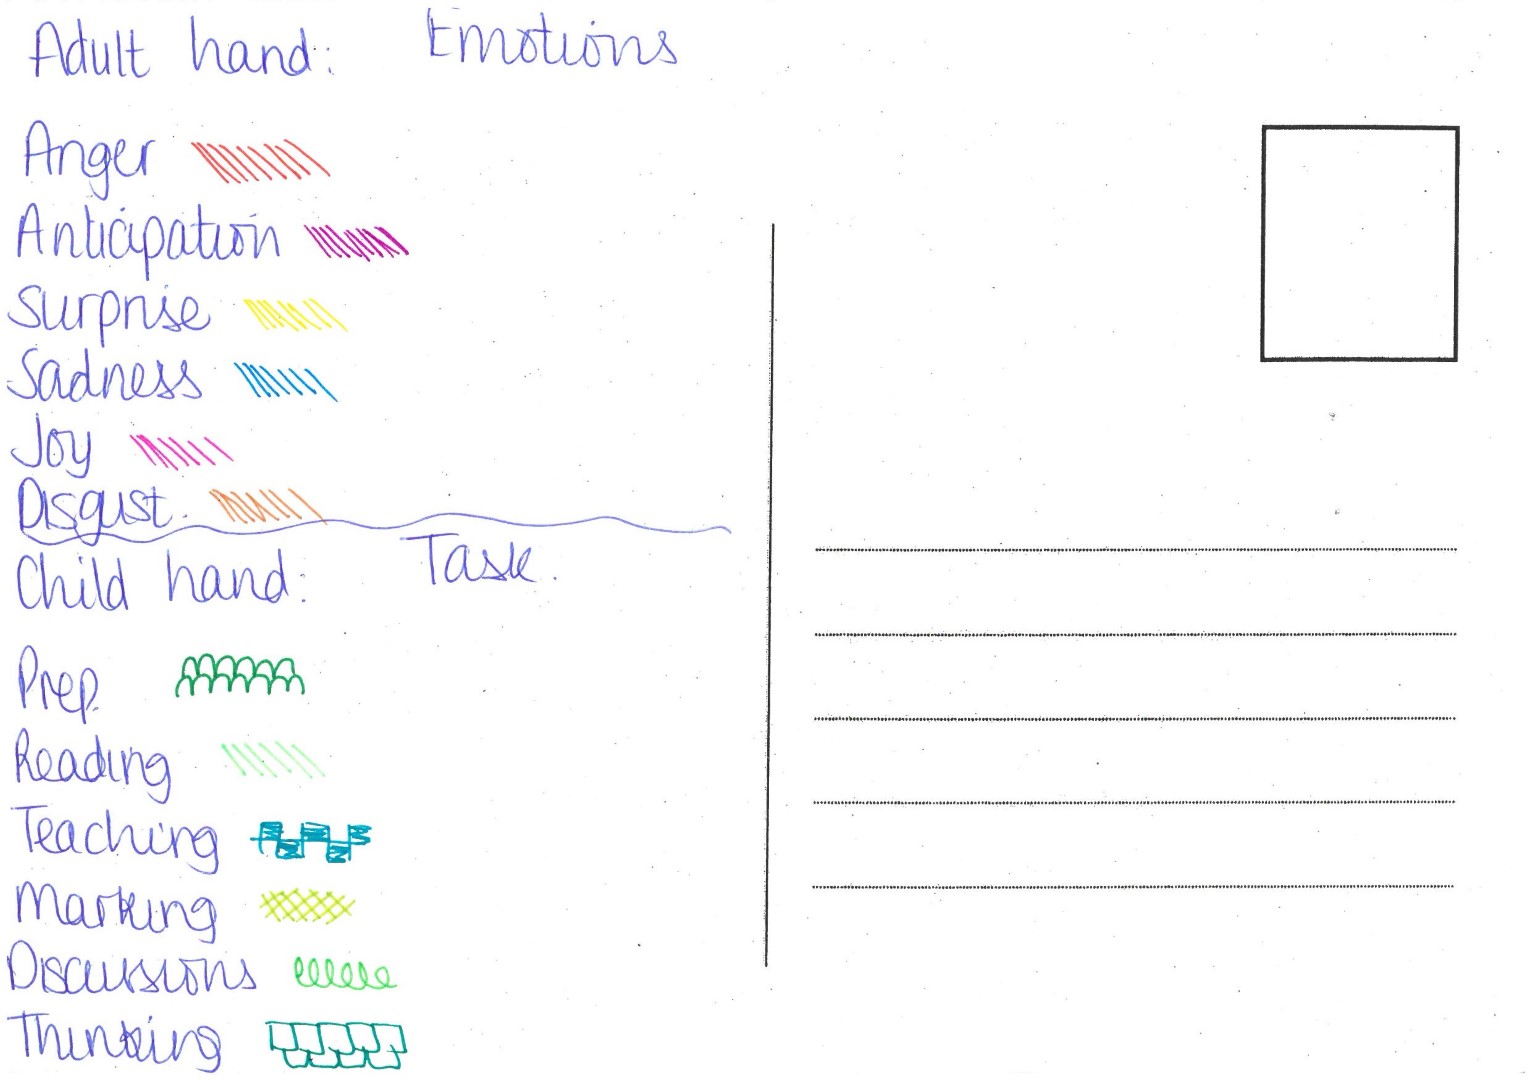 Adult hand: Emotions
Anger
Anticipation
Surprise
Sadness
Joy
Disgust.
Child hand: Task.
Prep.
Reading
Teaching
Marking
Discussions
Thinking